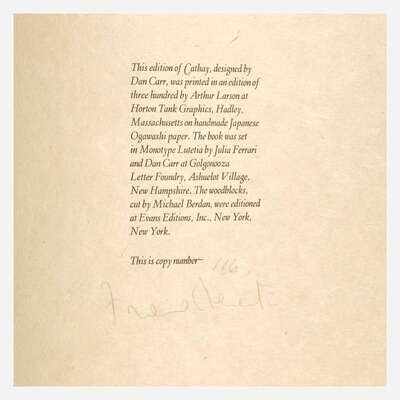 This edition of Cathay, designed by
Dan Carr, was printed in an edition of
three hundred by Arthur Larson at
Horton Tank Graphics, Hadley,
Massachusetts on handmade Japanese
Ogawashi paper. The book was set
in Monotype Lutetia by Julia Ferrari
and Dan Carr at Golgonooza
Letter Foundry, Ashuelot Village,
New Hampshire. The woodblocks,
cut by Michael Berdan, were editioned
at Evans Editions, Inc., New York,
New York.
This is copy number